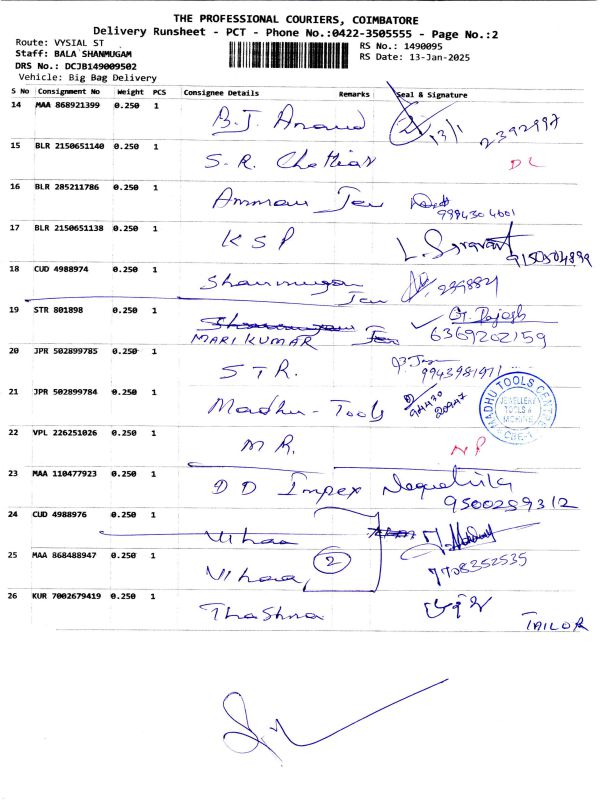 THE PROFESSIONAL COURIERS, COIMBATORE
Delivery Runsheet - PCT - Phone No.:0422-3505555 - Page No.:2
Route: VYSIAL ST
Staff: BALA SHANMUGAM
DRS No.: DCJB149009502
Vehicle: Big Bag Delivery
RS No.: 1490095
RS Date: 13-Jan-2025
S No Consignment No Weight PCS Consignee Details Remarks Seal & Signature
14 MAA 868921399 0.250 1 B.J. Anand 13/1 2392997
15 BLR 2150651140 0.250 1 S.R. Chettiar DL
16 BLR 285211786 0.250 1 Amman Jew 9994304001
17 BLR 2150651138 0.250 1 KSP
18 CUD 4988974 0.250 1 Shanmugan Jew
19 STR 801898 0.250 1 MARI KUMAR Jew 6369202159
20 JPR 502899785 0.250 1 STR. 9943981971
21 JPR 502899784 0.250 1 Madhu - Tools 94430 20947
MADHU TOOLS CENTRE
JEWELLERY
TOOLS &
CBE-1
22 VPL 226251026 0.250 1 MR. NP
23 MAA 110477923 0.250 1 DD Impex 9500259312
24 CUD 4988976 0.250 1 Vihaa
25 MAA 868488947 0.250 1 Vihaa, 2 7708352535
26 KUR 7002679419 0.250 1 Thashna
TAILOR